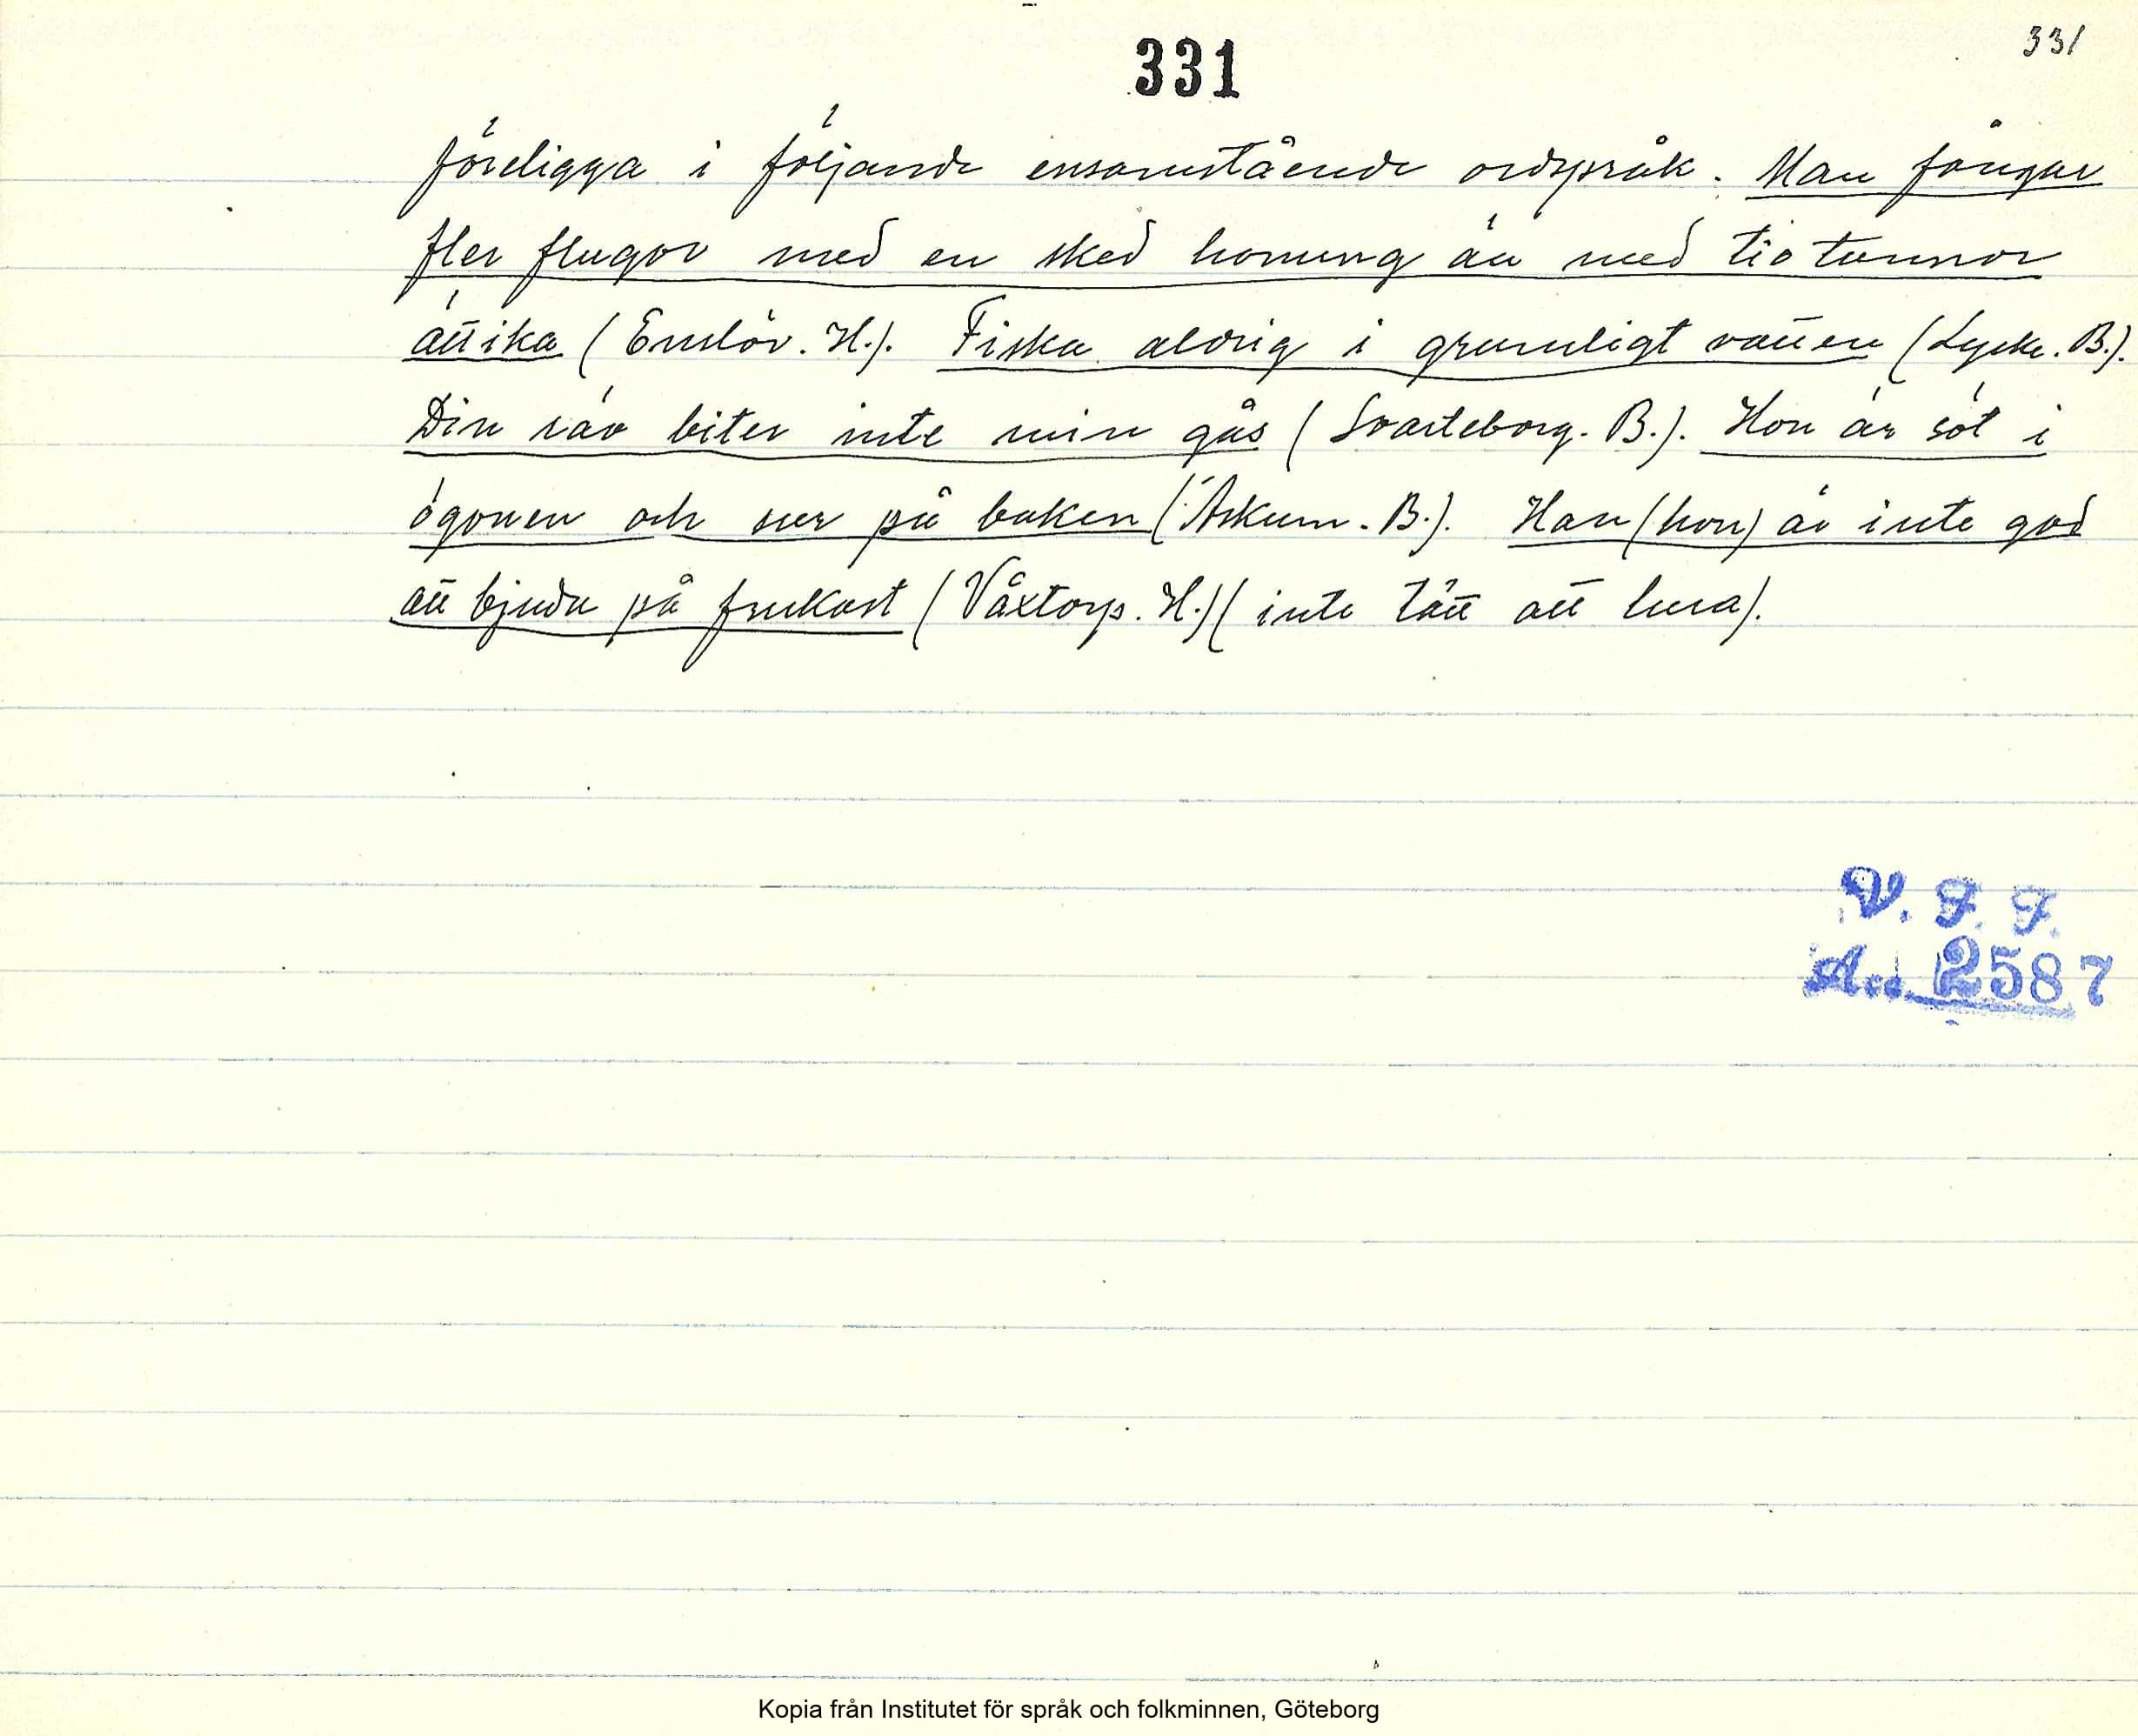 331
331
föreligga i följande ensamstående ordspråk. Man fångar
fler flugor med en sked honung än med tio tunnor
ättika (Enslöv. H.). Fiska aldrig i grumligt vatten (Lycke. B.).
Din räv biter inte min gås (Svarteborg. B.). Hon är söt i
ögonen och sur på baken (Askum. B.). Han (hon) är inte god
att bjuda på frukost (Våxtorp. H.) (inte lätt att lura).
V. F. F.
Acc. 2587
Kopia från Institutet för språk och folkminnen, Göteborg